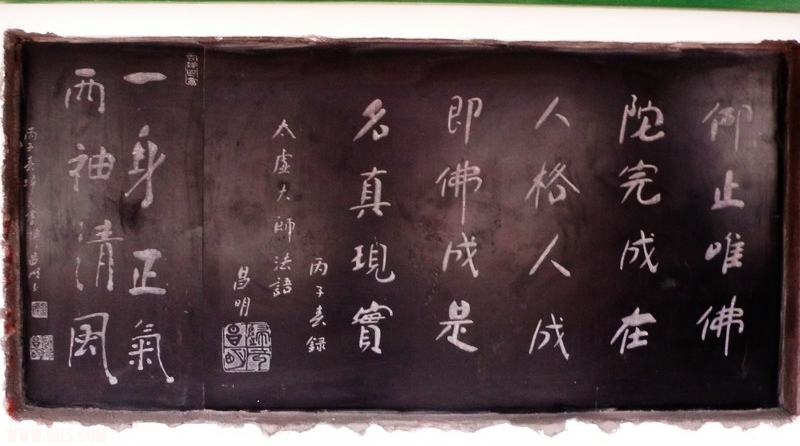 仰止唯佛
陀完成在
人格人成
即佛成是
名真現實
丙子春録
太虛大師法語
昌明
一身正氣
兩袖清風
丙子春